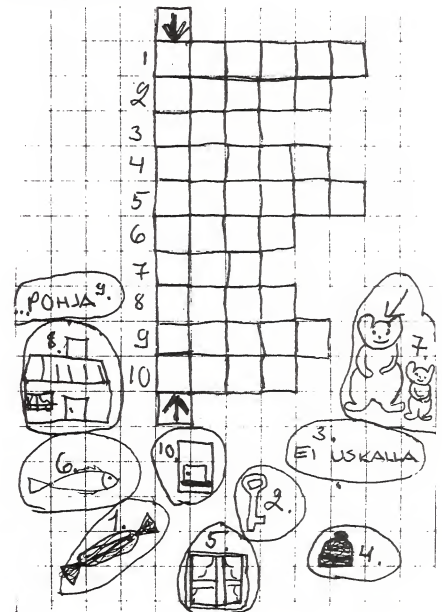 1
2
3
4
5
6
7
8
9
10
...POHJA 9.
8.
7.
3.
EI USKALLA
6.
10.
2.
1.
5.
4.